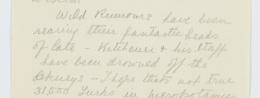 Wild Rumours have been
rearing their fantastic heads
of late - Kitchener & his staff
have been drowned off the
Orkneys - I hope thats not true
31,000 Turks in mesopotamia